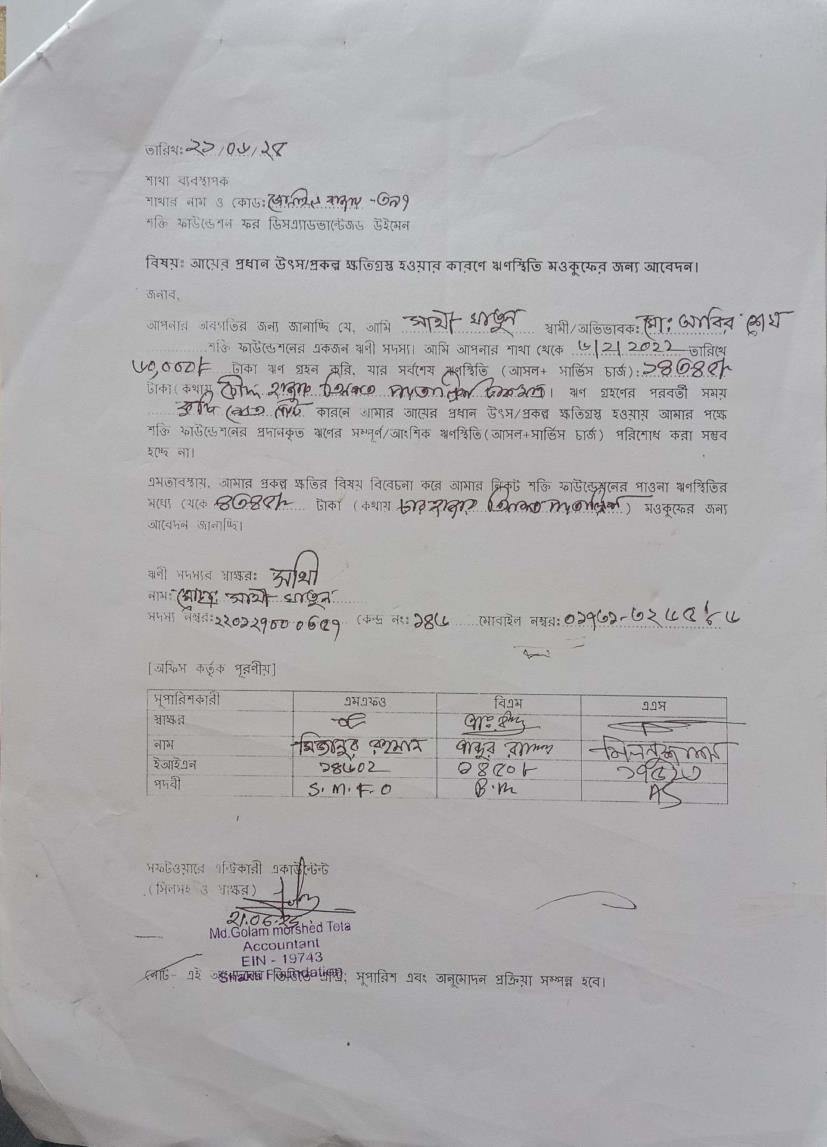 তারিখ: ২১/০৬/২৫
শাখা ব্যবস্থাপক
শাখার নাম ও কোড:
শক্তি ফাউন্ডেশন ফর ডিসএ্যাডভান্টেজড উইমেন
বিষয়: আয়ের প্রধান উৎস/প্রকল্প ক্ষতিগ্রস্ত হওয়ার কারণে ঋণস্থিতি মওকুফের জন্য আবেদন।
জনাব,
আপনার অবগতির জন্য জানাচ্ছি যে, আমি সাথী খাতুন স্বামী/অভিভাবক: মো: আবির শেখ
শক্তি ফাউন্ডেশনের একজন ঋণী সদস্য। আমি আপনার শাখা থেকে ৬/2/2022 তারিখে
৬০,০০০/- টাকা ঋণ গ্রহন করি, যার সর্বশেষ ঋণস্থিতি (আসল+ সার্ভিস চার্জ):
টাকা (কথায় চৌদ্দ হাজার তিনশত ঋণ গ্রহণের পরবর্তী সময়
কারনে আমার আয়ের প্রধান উৎস/প্রকল্প ক্ষতিগ্রস্ত হওয়ায় আমার পক্ষে
শক্তি ফাউন্ডেশনের প্রদানকৃত ঋণের সম্পূর্ণ/আংশিক ঋণস্থিতি (আসল+সার্ভিস চার্জ) পরিশোধ করা সম্ভব
হচ্ছে না।
এমতাবস্থায়, আমার প্রকল্প ক্ষতির বিষয় বিবেচনা করে আমার নিকট শক্তি ফাউন্ডেশনের পাওনা ঋণস্থিতির
মধ্যে থেকে টাকা (কথায় চার হাজার তিনশত ) মওকুফের জন্য
আবেদন জানাচ্ছি।
ঋণী সদস্যর স্বাক্ষর: সাথী
নাম: মোছা: সাথী খাতুন
সদস্য নম্বর: কেন্দ্র নং: ১৪৬ মোবাইল নম্বর:
[অফিস কর্তৃক পূরণীয়]
সুপারিশকারী এমএফও বিএম এএস
স্বাক্ষর
নাম মিজানুর রহমান
ইআইএন
পদবী S.M.F.O B.M AS
সফটওয়ারে এন্ট্রিকারী একাউন্টেন্ট
(সিলসহ ও স্বাক্ষর)
21.06.25
Md.Golam morshed Tota
Accountant
EIN - 19743
Shakti Foundation
নোট- এই সুপারিশ এবং অনুমোদন প্রক্রিয়া সম্পন্ন হবে।